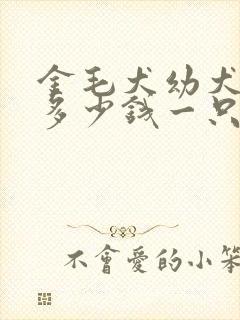 金毛犬幼犬
多少錢一只
不會愛的小笨